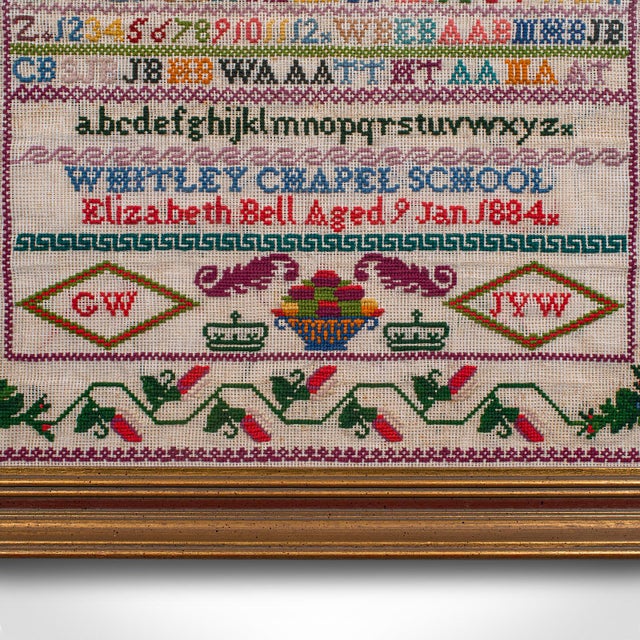 Z 1 2 3 4 5 6 7 8 9 10 11 12 WB EB AAB MHB JB
CB JB HB WA AA TT HT AA MA AT
abcdefghijklmnopqrstuvwxyz
WHITLEY CHAPEL SCHOOL
Elizabeth Bell Aged 9 Jan. 1884
GW JYW